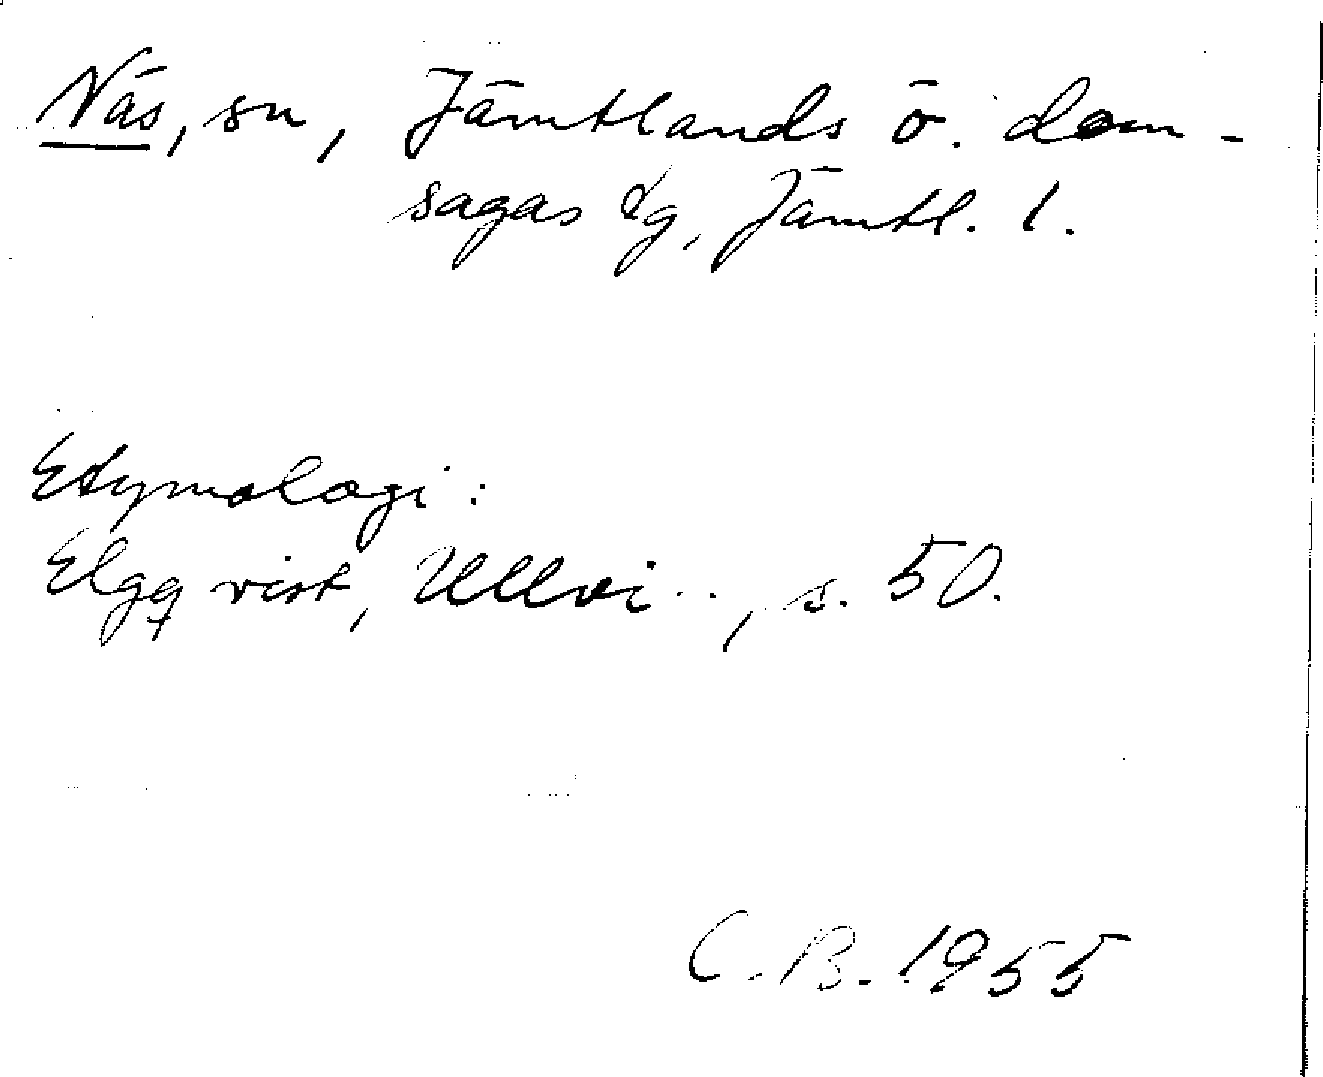 Näs, sn, Jämtlands ö. dom-
sagas dg, Jämtl. l.
Etymologi:
Elgqvist, Ullvi.., s. 50.
C.B. 1955